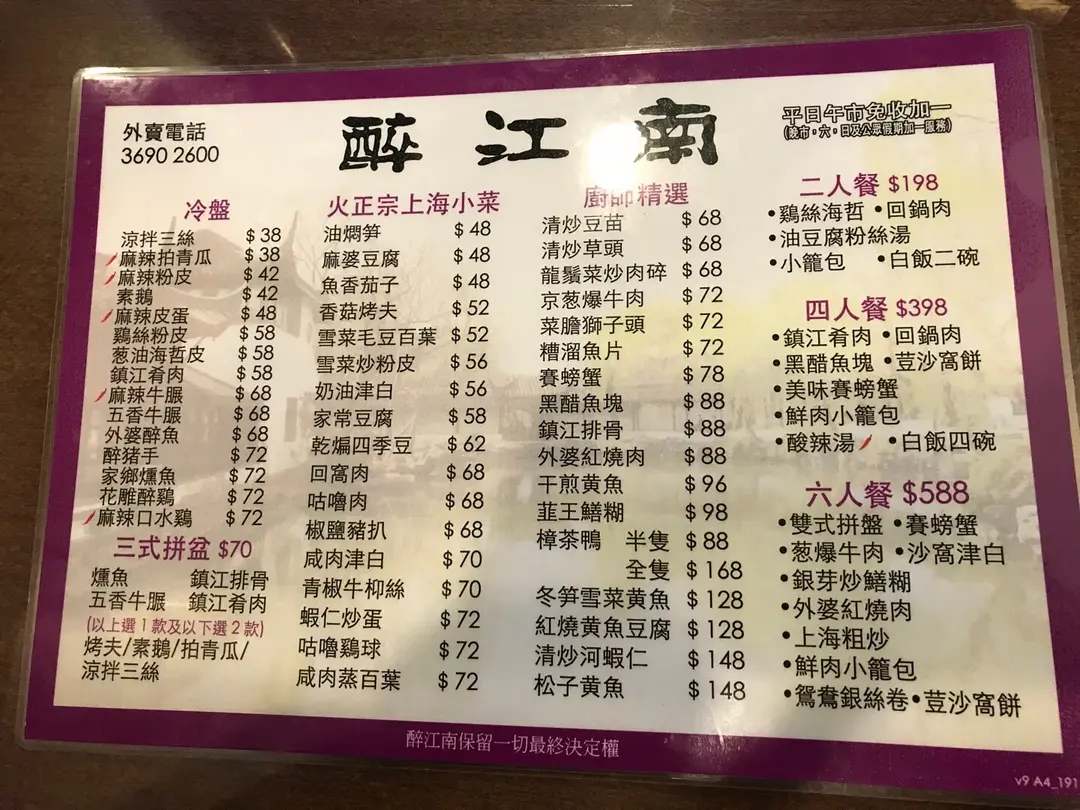 外賣電話
3690 2600
醉江南
平日午市免收加一
(晚市，六，日及公眾假期加一服務)
冷盤
涼拌三絲 $38
麻辣拍青瓜 $38
麻辣粉皮 $42
素鵝 $42
麻辣皮蛋 $48
鷄絲粉皮 $58
葱油海哲皮 $58
鎮江肴肉 $58
麻辣牛腒 $68
五香牛腒 $68
外婆醉魚 $68
醉猪手 $72
家鄉燻魚 $72
花雕醉鷄 $72
麻辣口水鷄 $72
三式拼盆 $70
燻魚 鎮江排骨
五香牛腒 鎮江肴肉
(以上選1款及以下選2款)
烤夫/素鵝/拍青瓜/
涼拌三絲
火正宗上海小菜
油燜笋 $48
麻婆豆腐 $48
魚香茄子 $48
香菇烤夫 $52
雪菜毛豆百葉 $52
雪菜炒粉皮 $56
奶油津白 $56
家常豆腐 $58
乾煸四季豆 $62
回窩肉 $68
咕嚕肉 $68
椒鹽豬扒 $68
咸肉津白 $70
青椒牛柳絲 $70
蝦仁炒蛋 $72
咕嚕鷄球 $72
咸肉蒸百葉 $72
廚師精選
清炒豆苗 $68
清炒草頭 $68
龍鬚菜炒肉碎 $68
京葱爆牛肉 $72
菜膽獅子頭 $72
糟溜魚片 $72
賽螃蟹 $78
黑醋魚塊 $88
鎮江排骨 $88
外婆紅燒肉 $88
干煎黄魚 $96
韮王鱔糊 $98
樟茶鴨 半隻 $88
全隻 $168
冬笋雪菜黄魚 $128
紅燒黄魚豆腐 $128
清炒河蝦仁 $148
松子黄魚 $148
二人餐 $198
•鷄絲海哲 •回鍋肉
•油豆腐粉絲湯
•小籠包 •白飯二碗
四人餐 $398
•鎮江肴肉 •回鍋肉
•黑醋魚塊 •荳沙窩餅
•美味賽螃蟹
•鮮肉小籠包
•酸辣湯 •白飯四碗
六人餐 $588
•雙式拼盤 •賽螃蟹
•葱爆牛肉 •沙窩津白
•銀芽炒鱔糊
•外婆紅燒肉
•上海粗炒
•鮮肉小籠包
•鴛鴦銀絲卷•荳沙窩餅
醉江南保留一切最終決定權
v9 A4_191